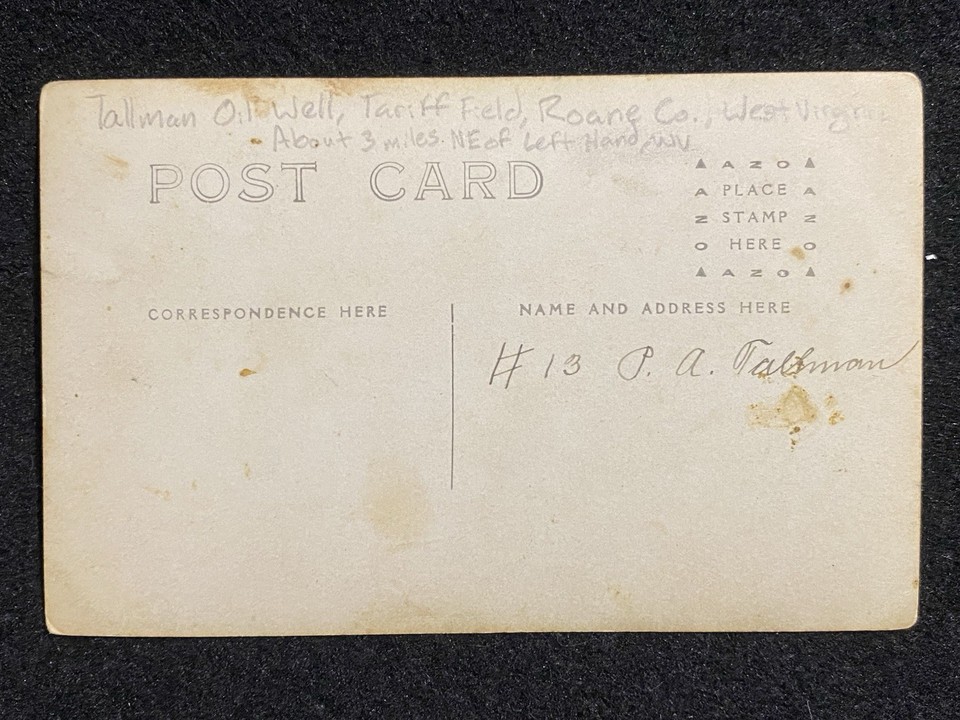 Tallman Oil Well, Tariff Field, Roane Co., West Virginia
About 3 miles NE of Left Hand, WV
POST CARD
▲ A Z O ▲
A PLACE A
Z STAMP Z
O HERE O
▲ A Z O ▲
CORRESPONDENCE HERE
NAME AND ADDRESS HERE
#13 P. A. Tallman